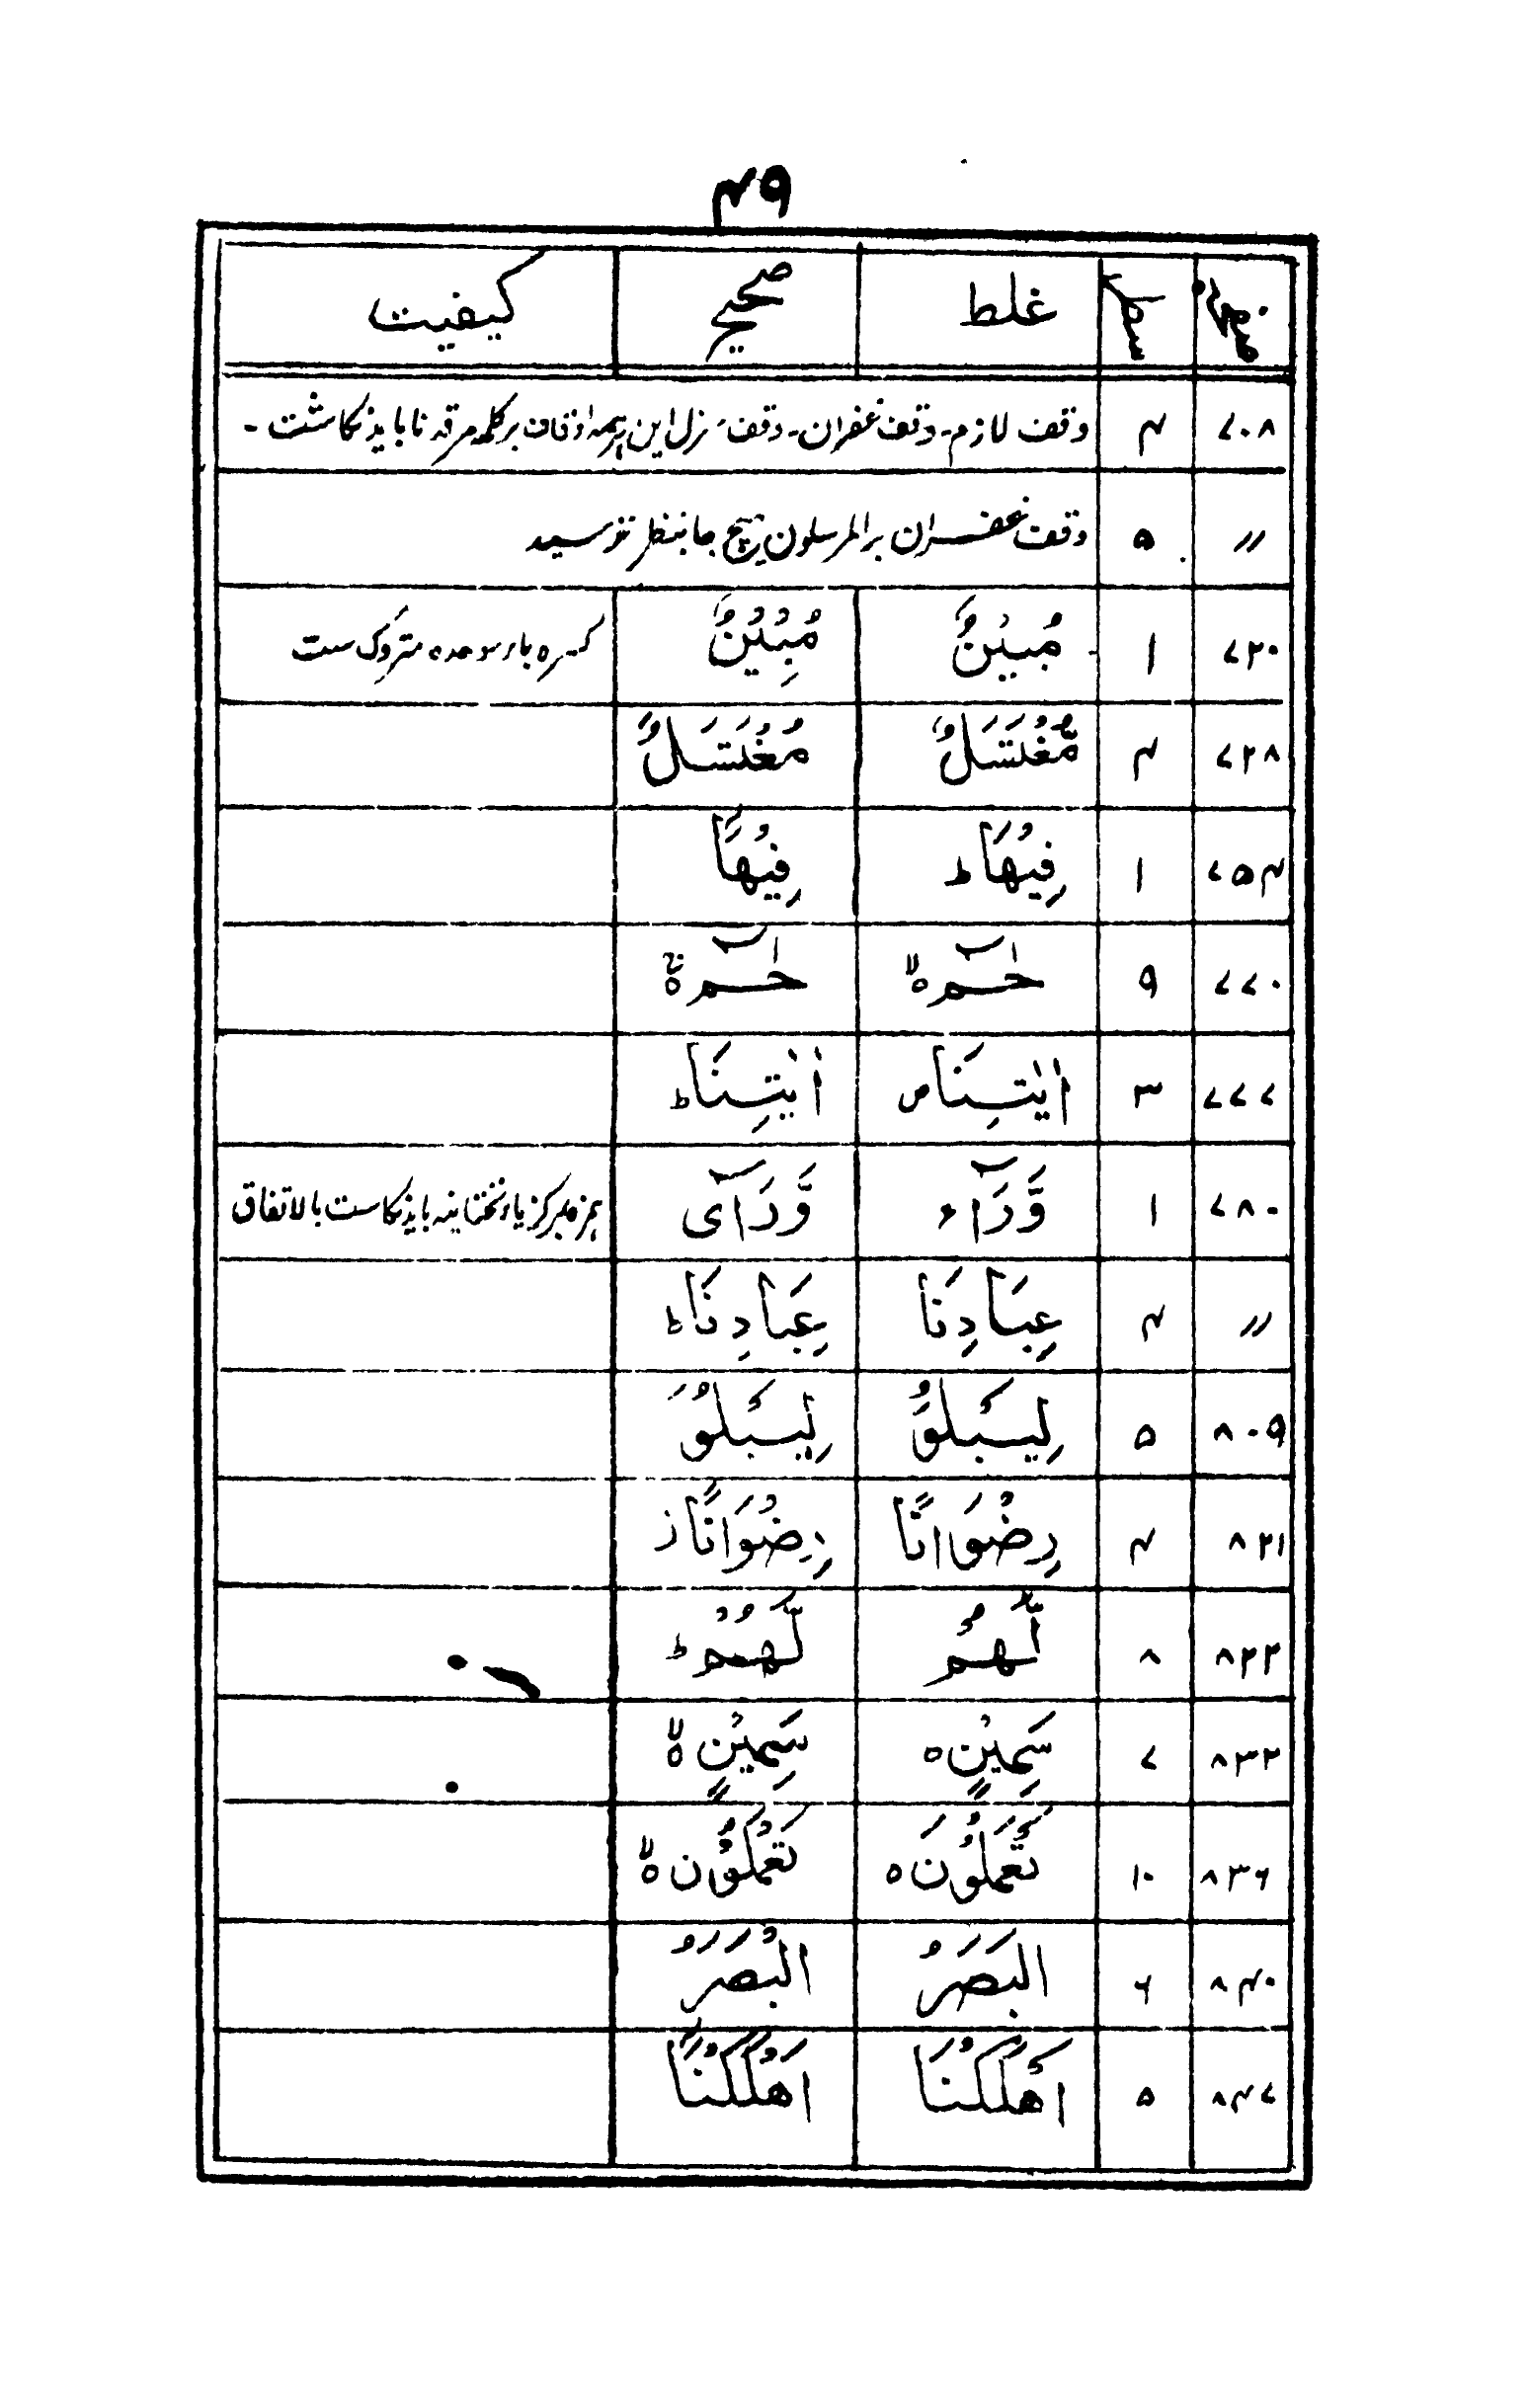 ۴۹
صفحہ سطر غلط صحیح کیفیت
۷۰۸ ۴ وقف لازم۔ وقف غفران۔ وقف منزل این ہمہ اوقاف بر کلمہ مرقدنا باید نگاشت۔
〃 ۵ وقف غفران بر المرسلون ہیچ جا بنظر نرسید
۷۲۰ ۱ مُبِيْنٌ مُّبِيْنٌ کسرہ باء موحدہ متروک ست
۷۲۸ ۴ مُّغْتَسَلٌ مُغْتَسَلٌ
۷۵۴ ۱ فِيْهَا ط فِيْهَا
۷۷۰ ۹ حٰمٓ ہ لا حٰمٓ ہ ج
۷۷۷ ۳ اٰيٰتِنَا ص اٰيٰتِنَا ط
۷۸۰ ۱ وَّرَآء وَّرَآی ہمزہ بر مرکز یاء تحتانیہ باید نگاشت بالاتفاق
〃 ۴ عِبَادِنَا عِبَادِنَا ط
۸۰۹ ۵ لِيَبْلُوَ لِيَبْلُوَ
۸۲۱ ۴ رِضْوَانًا رِضْوَانًا ز
۸۲۲ ۸ لَّهُمْ لَّهُمْ ط
۸۳۲ ۷ سَمِيْنٍ ہ سَمِيْنٍ ہ لا
۸۳۶ ۱۰ تَعْمَلُوْنَ ہ تَعْمَلُوْنَ ہ لا
۸۴۰ ۶ البَصَرُ الْبَصَرُ
۸۴۷ ۵ اَهْلَكْنَا اَهْلَكْنَا